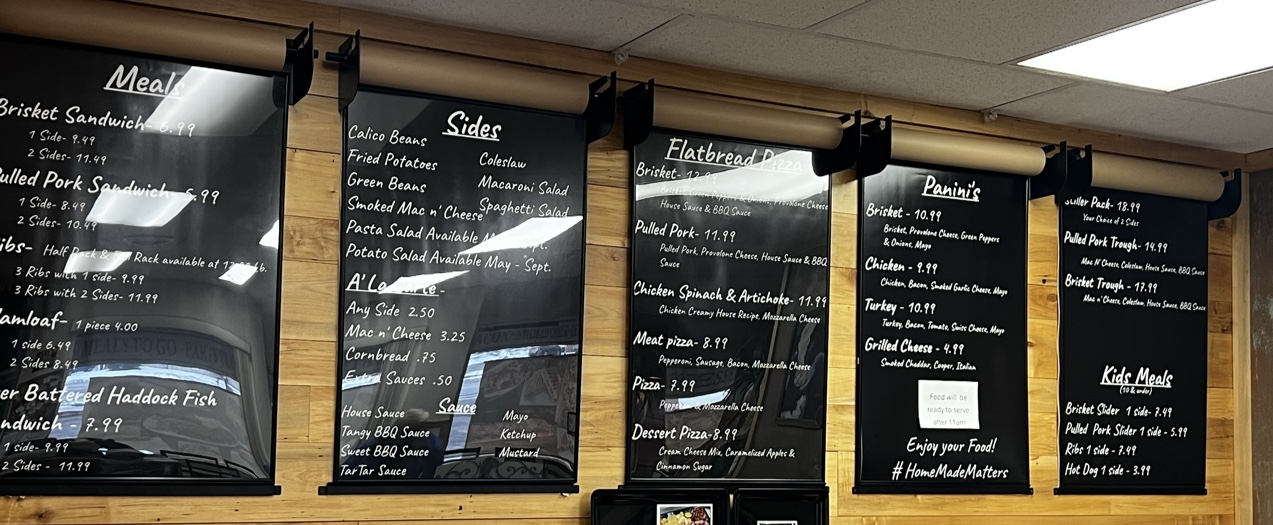 Meals
Brisket Sandwich- 6.99
1 Side- 9.49
2 Sides- 11.49
ulled Pork Sandwich- 6.99
1 Side- 8.49
2 Sides- 10.49
ibs- Half Rack & Rack available at
3 Ribs with 1 side- 9.99
3 Ribs with 2 Sides- 11.99
amloaf- 1 piece 4.00
1 side 6.49
2 Sides 8.49
er Battered Haddock Fish
ndwich - 7.99
1 side- 9.99
2 Sides - 11.99
Sides
Calico Beans
Fried Potatoes
Green Beans
Smoked Mac n' Cheese
Coleslaw
Macaroni Salad
Spaghetti Salad
Pasta Salad Available
Potato Salad Available May - Sept.
A'La Carte-
Any Side 2.50
Mac n' Cheese 3.25
Cornbread .75
Extra Sauces .50
Sauce
House Sauce
Tangy BBQ Sauce
Sweet BBQ Sauce
TarTar Sauce
Mayo
Ketchup
Mustard
Flatbread Pizza
Brisket- 12.99
Brisket, Green Peppers & Onions, Provolone Cheese
House Sauce & BBQ Sauce
Pulled Pork- 11.99
Pulled Pork, Provolone Cheese, House Sauce & BBQ
Sauce
Chicken Spinach & Artichoke- 11.99
Chicken Creamy House Recipe, Mozzarella Cheese
Meat pizza- 8.99
Pepperoni, Sausage, Bacon, Mozzarella Cheese
Pizza- 7.99
Pepperoni, Mozzarella Cheese
Dessert Pizza-8.99
Cream Cheese Mix, Caramelized Apples &
Cinnamon Sugar
Panini's
Brisket - 10.99
Brisket, Provolone Cheese, Green Peppers
& Onions, Mayo
Chicken - 9.99
Chicken, Bacon, Smoked Garlic Cheese, Mayo
Turkey - 10.99
Turkey, Bacon, Tomato, Swiss Cheese, Mayo
Grilled Cheese - 4.99
Smoked Cheddar, Cooper, Italian
Food will be
ready to serve
after 11am
Enjoy your Food!
#HomeMadeMatters
Pack- 18.99
Your Choice of 2 Sides
Pulled Pork Trough- 14.99
Mac N' Cheese, Coleslaw, House Sauce, BBQ Sauce
Brisket Trough - 17.99
Mac n' Cheese, Coleslaw, House Sauce, BBQ Sauce
Kids Meals
(10 & under)
Brisket Slider 1 side- 7.49
Pulled Pork Slider 1 side - 5.99
Ribs 1 side - 7.49
Hot Dog 1 side - 3.99